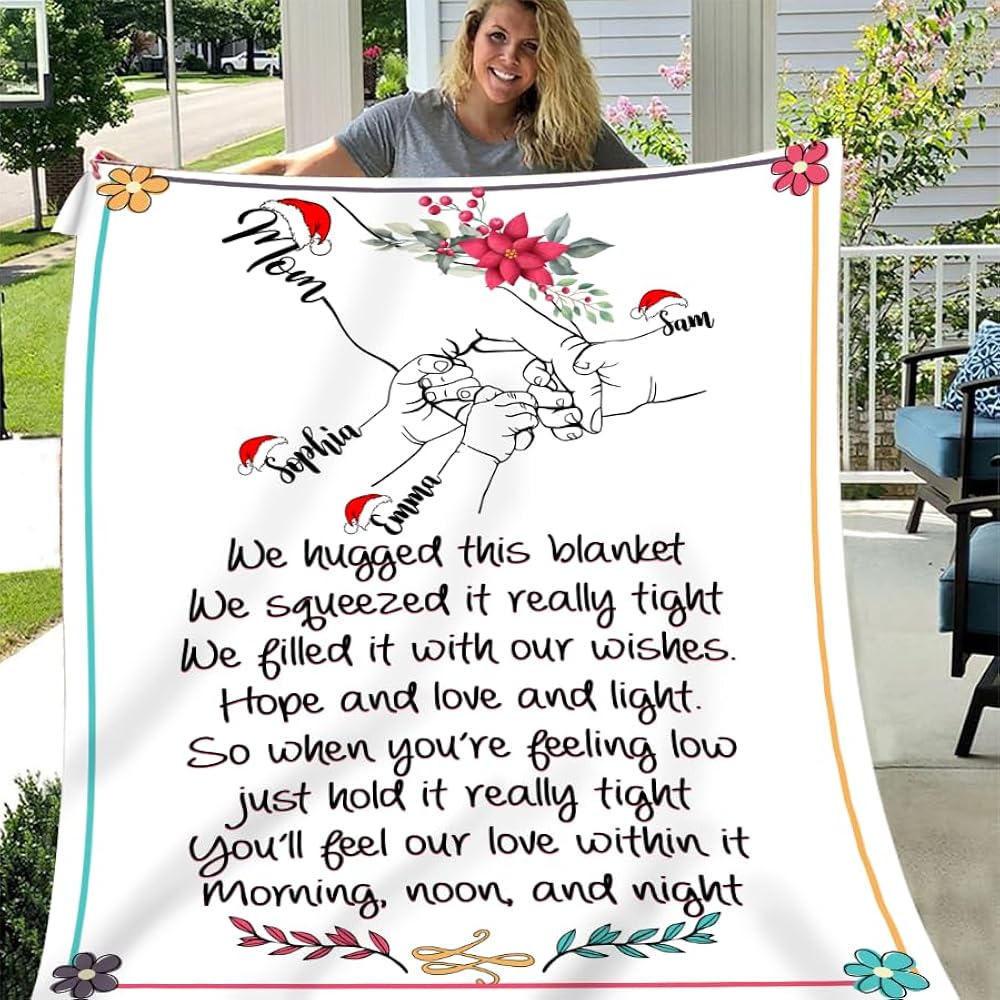 Mom
Sam
Sophia
Emma
We hugged this blanket
We squeezed it really tight
We filled it with our wishes.
Hope and love and light.
So when you're feeling low
just hold it really tight
You'll feel our love within it
Morning, noon, and night